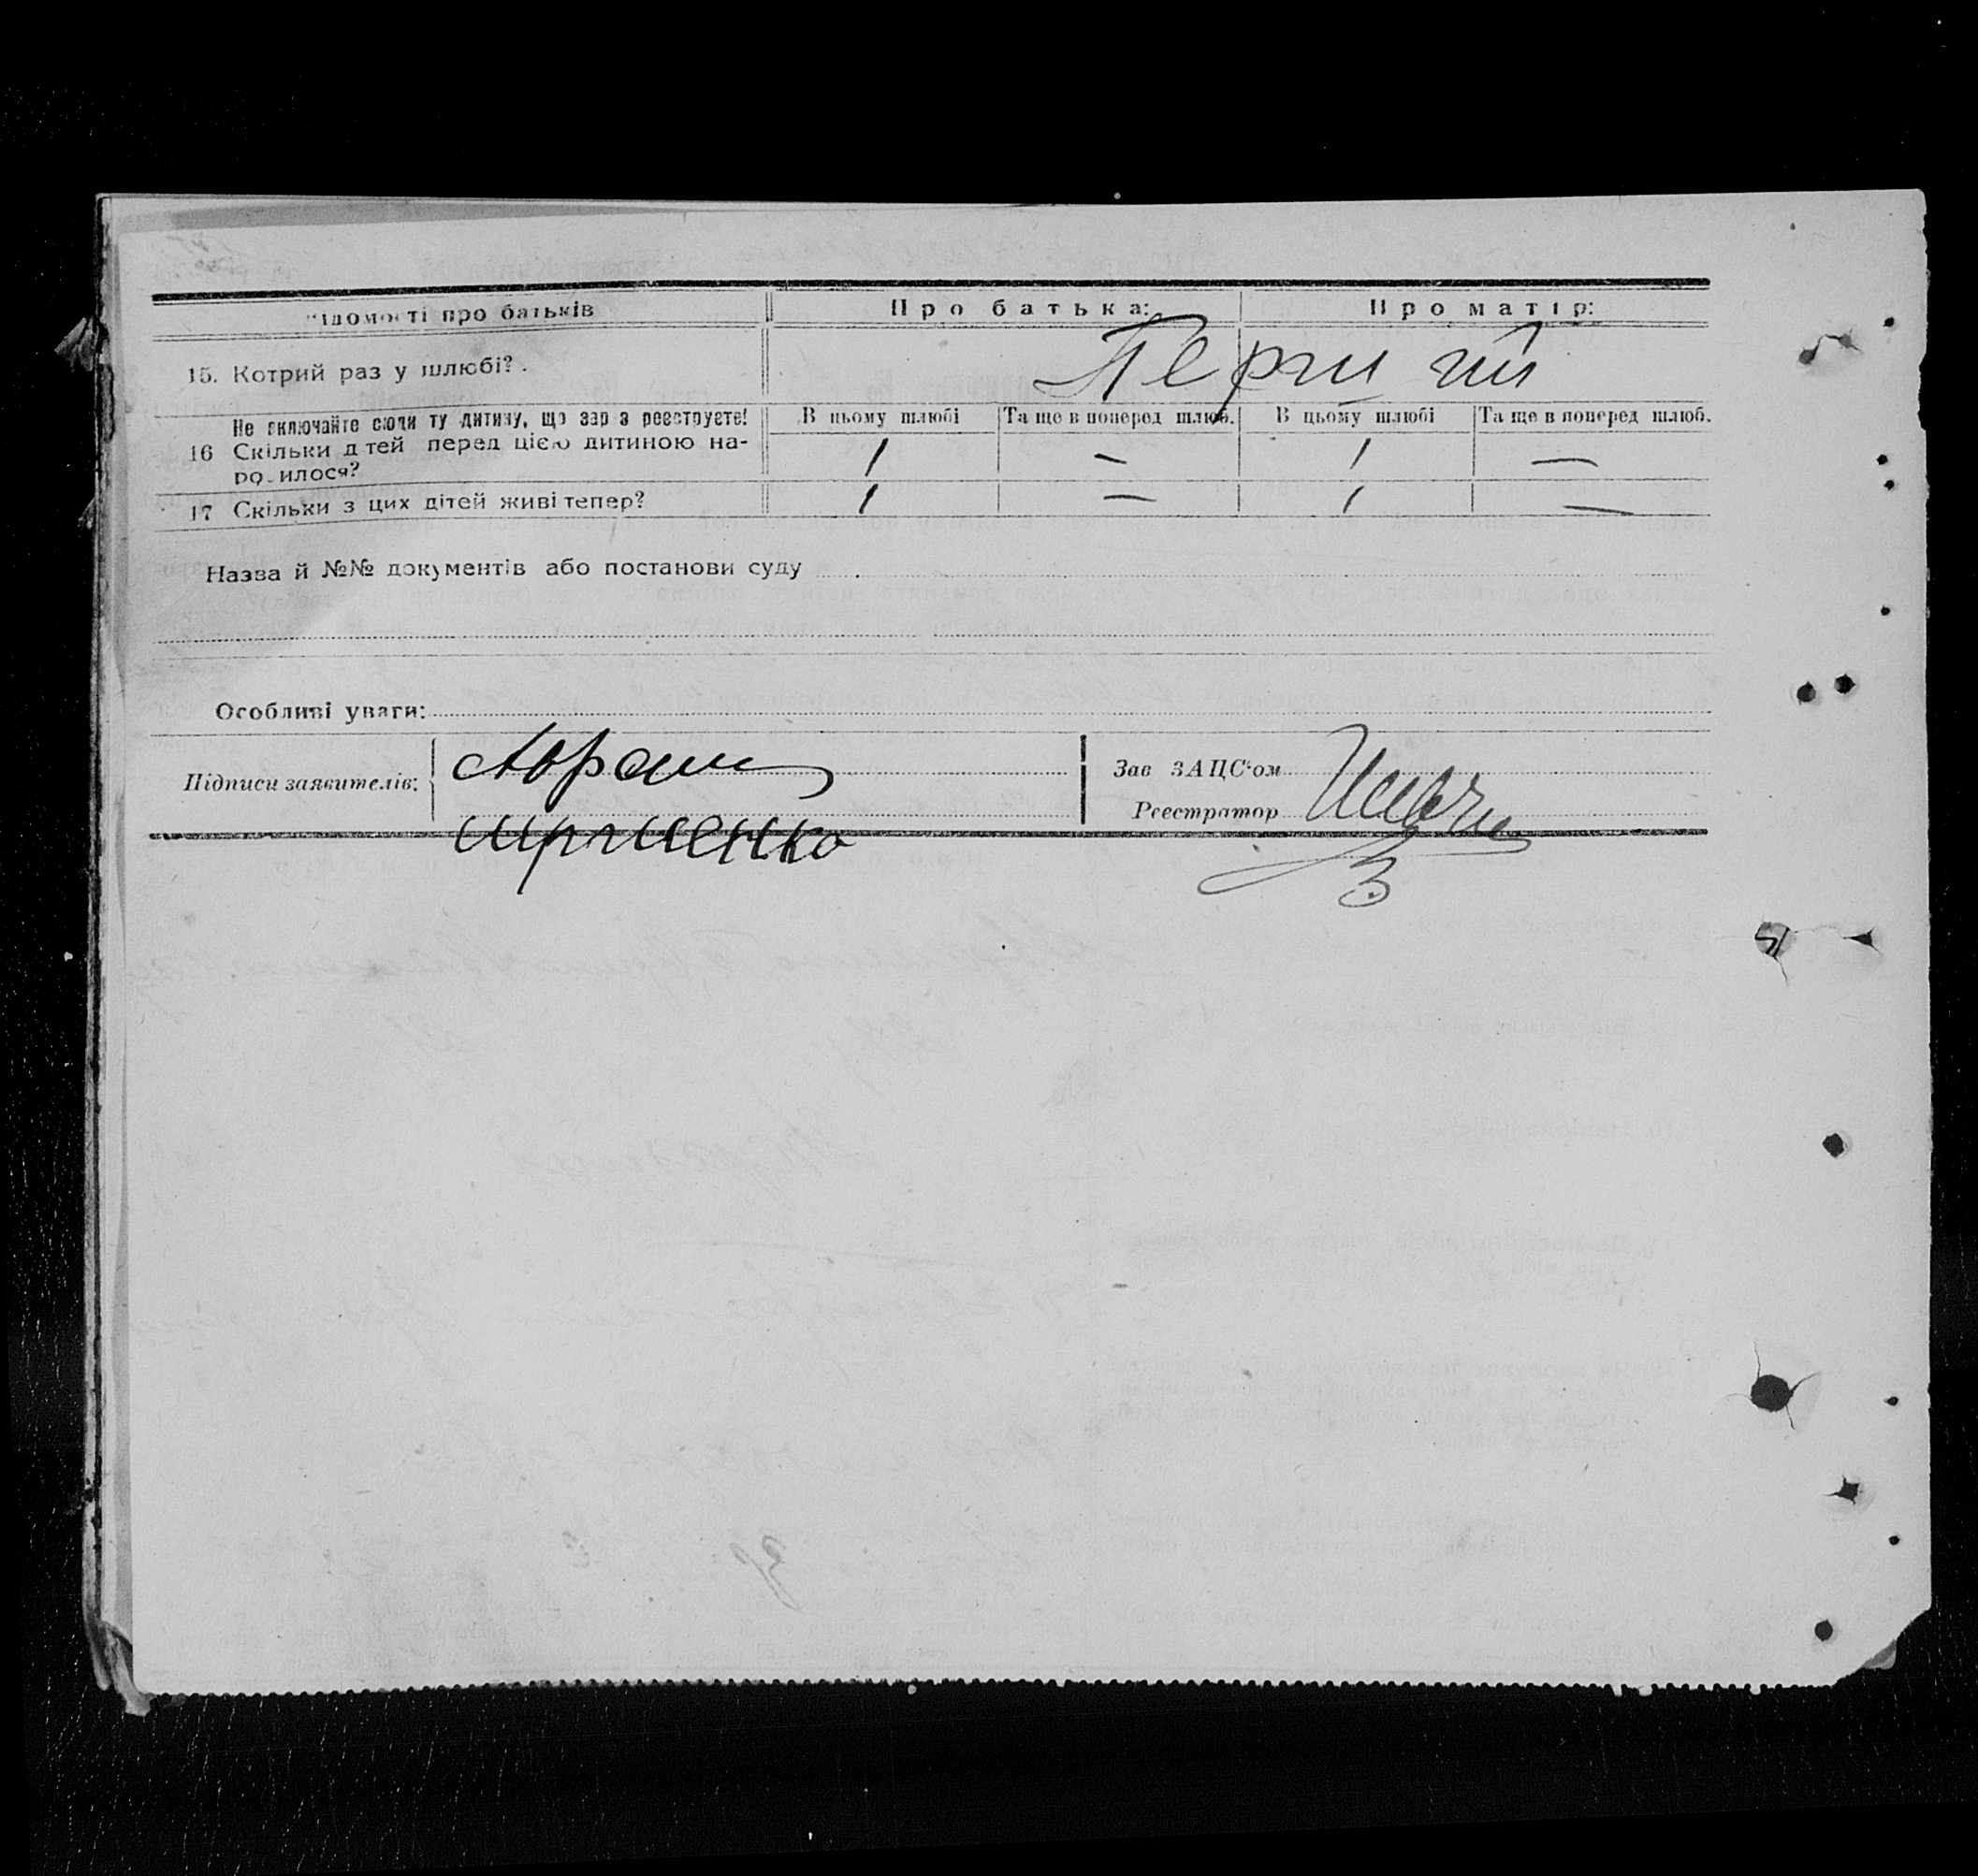 відомості про батьків Про батька: Про матір:
15. Котрий раз у шлюбі?. Перший
Не включайте сюди ту дитину, що зараз реєструєте! В цьому шлюбі Та ще в поперед шлюб. В цьому шлюбі Та ще в поперед шлюб.
16 Скільки дітей перед цією дитиною на- 1 — 1 —
родилося?
17 Скільки з цих дітей живі тепер? 1 — 1 —
Назва й №№ документів або постанови суду
Особливі уваги:
Підписи заявителів:
Зав ЗАЦС'ом
Реєстратор